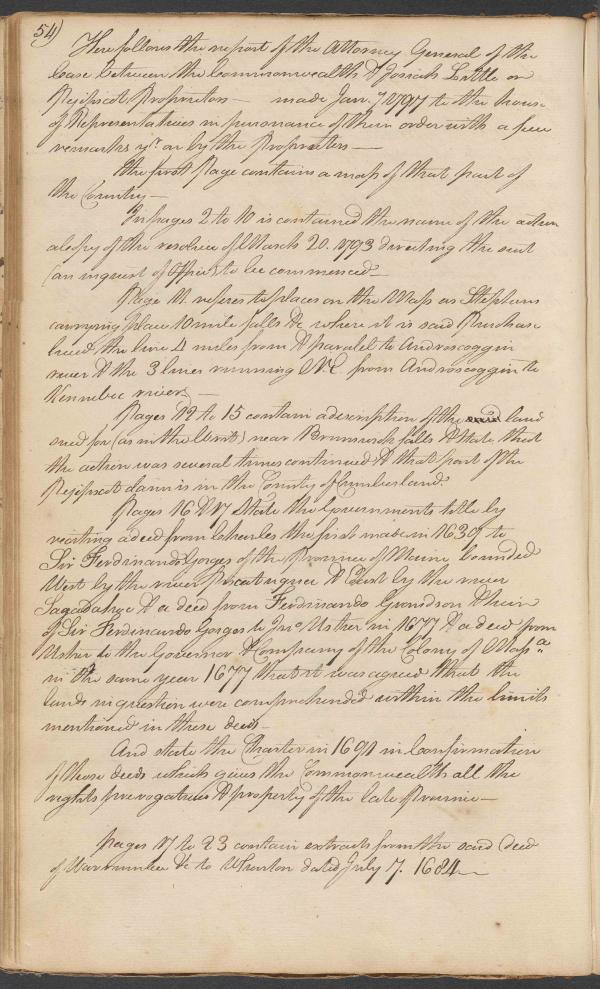 54)
Here follows the report of the Attorney General of the
Case between the Commonwealth & Josiah Little or
Pejipscot Proprietors — made Jany 1797 to the house
of Representatives in persuance of their order with a few
remarks yr on by the Proprietors —
The first Page contains a map of that part of
the Country —
In pages 2 to 10 is contained the name of the action
a Copy of the resolve of March 20. 1793 directing the suit
(an inquest of Office) to be commenced —
Page 11. referes to places on the Map as Stephens
carrying place 10 mile falls &c where it is said Purchase
lived the line 4 miles from & paralel to Androscoggin
river & the 3 lines running N.E. from Androscoggin to
Kennebec rivers —
Pages 12 to 15 contain a description of the land
sued for (as in the Writ) near Brunswick falls & State that
the action was several times continued & that part of the
Pejipscot claim is in the County of Cumberland.
Pages 16 & 17 State the Governments title by
reciting a deed from Charles the first made in 1639 to
Sir Ferdinando Gorges of the Province of Maine bounded
West by the river Piscataqua & East by the river
Sagadahoc & a deed from Ferdinando Grandson & heir
of Sir Ferdinando Gorges to Jno Usher in 1677 & a deed from
Usher to the Governor & Company of the Colony of Massa
in the same year 1677 that it was agreed that the
lands in question were comprehended within the limits
mentioned in these deeds —
And state the Charter in 1691 in Confirmation
of those deeds which gives the Commonwealth all the
rights prerogatives & property of the late Province —
pages 17 to 23 contain extracts from the said Deed
of Warrumbee &c to Wharton dated July 7. 1684 —